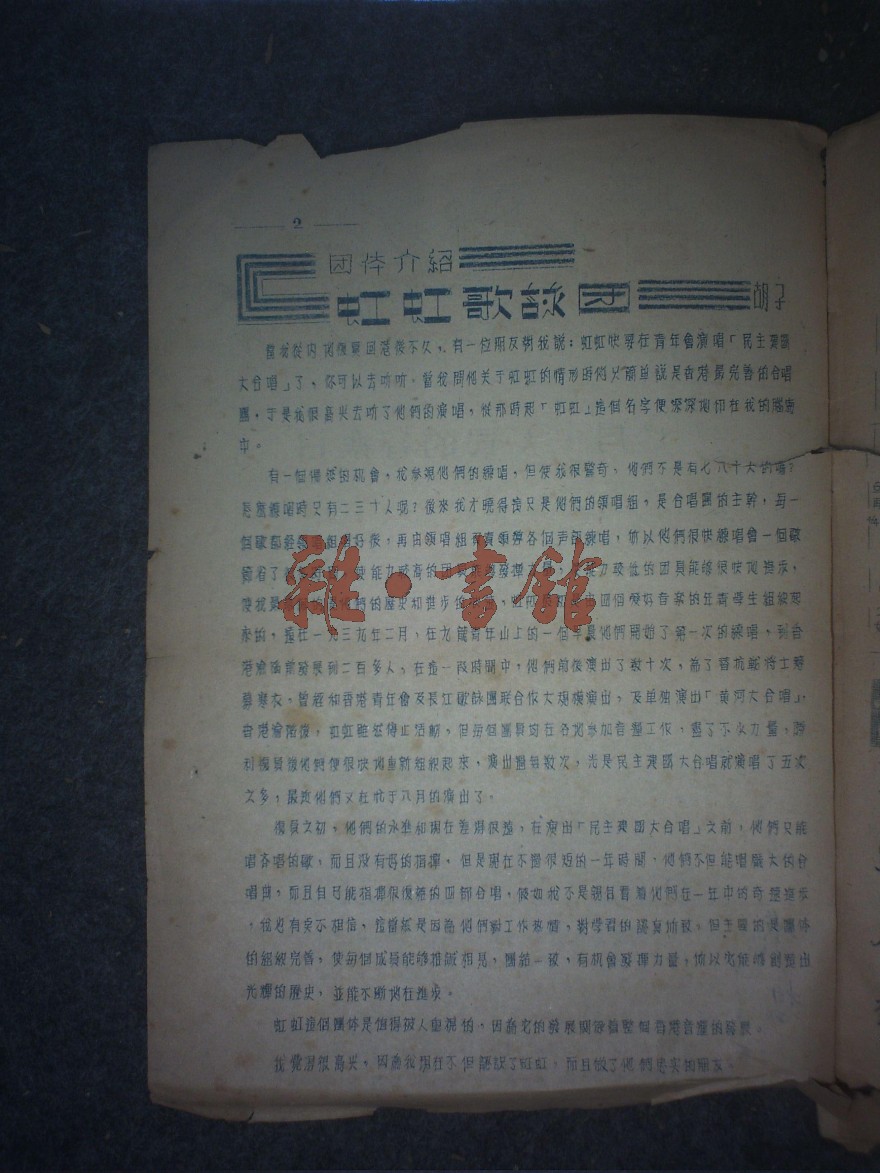 2
团体介紹
虹虹歌詠团 胡子
當我從內地復員回港後不久，有一位朋友對我說：虹虹快要在青年會演唱「民主建國
大合唱」了，你可以去听听。當我問他关于虹虹的情形時他只簡单說是香港最完善的合唱
團，于是我很高兴去听了他們的演唱，從那時起「虹虹」這個名字便深深地印在我的腦海
中。
有一個偶然的机會，我參观他們的練唱，但使我很驚奇、他們不是有七八十人的嗎？
怎麼練唱時只有二三十人呢？後來我才曉得這只是他們的領唱組，是合唱團的主幹，每一
個歌都經領唱組唱好後，再由領唱組負責領導各個声部練唱，所以他們很快練唱會一個歌
節省了 使能力較高的團員能 能力較低的团員能够很快地進步，
使我 他們的歷史和進步 四個愛好音樂的年青學生組織起
來的，遠在一九三九年二月，在九龍青年山上的一個 他們開始了第一次的練唱，到香
港淪陷前發展到二百多人，在這一段時間中，他們前後演出了數十次，為了替抗戰将士募
募寒衣，曾經和香港青年會及長江歌詠團联合作大規模演出，及单独演出「黄河大合唱」，
香港淪陷後，虹虹雖然停止活動，但每個團員均在各地參加音樂工作，盡了不少力量，勝
利復員後他們便很快地重新組織起來，演出過無數次，光是民主建國大合唱就演唱了五次
之多，最近他們又在忙于八月的演出了。
復員之初，他們的水準和現在差得很遠，在演出「民主建國大合唱」之前，他們只能
唱齐唱的歌，而且没有好的指揮，但是現在不過很短的一年時間，他們不但能唱龐大的合
唱曲，而且自己能指揮很復雜的四部合唱，假如我不是親目看着他們在一年中的奇蹟進步
，我也有点不相信、這當然是因為他們對工作热情，對學習的認真所致。但主要的是團体
的組織完善，使每個成員能够相諴相見，團結一致，有机會發揮力量，所以它能够創造出
光輝的歷史，並能不斷地在進步。
虹虹這個團体是值得被人重視的，因為它的發展關係着整個香港音樂的發展。
我覺得很高兴，因為我現在不但認識了虹虹，而且做了他們忠实的朋友。
雜·書館